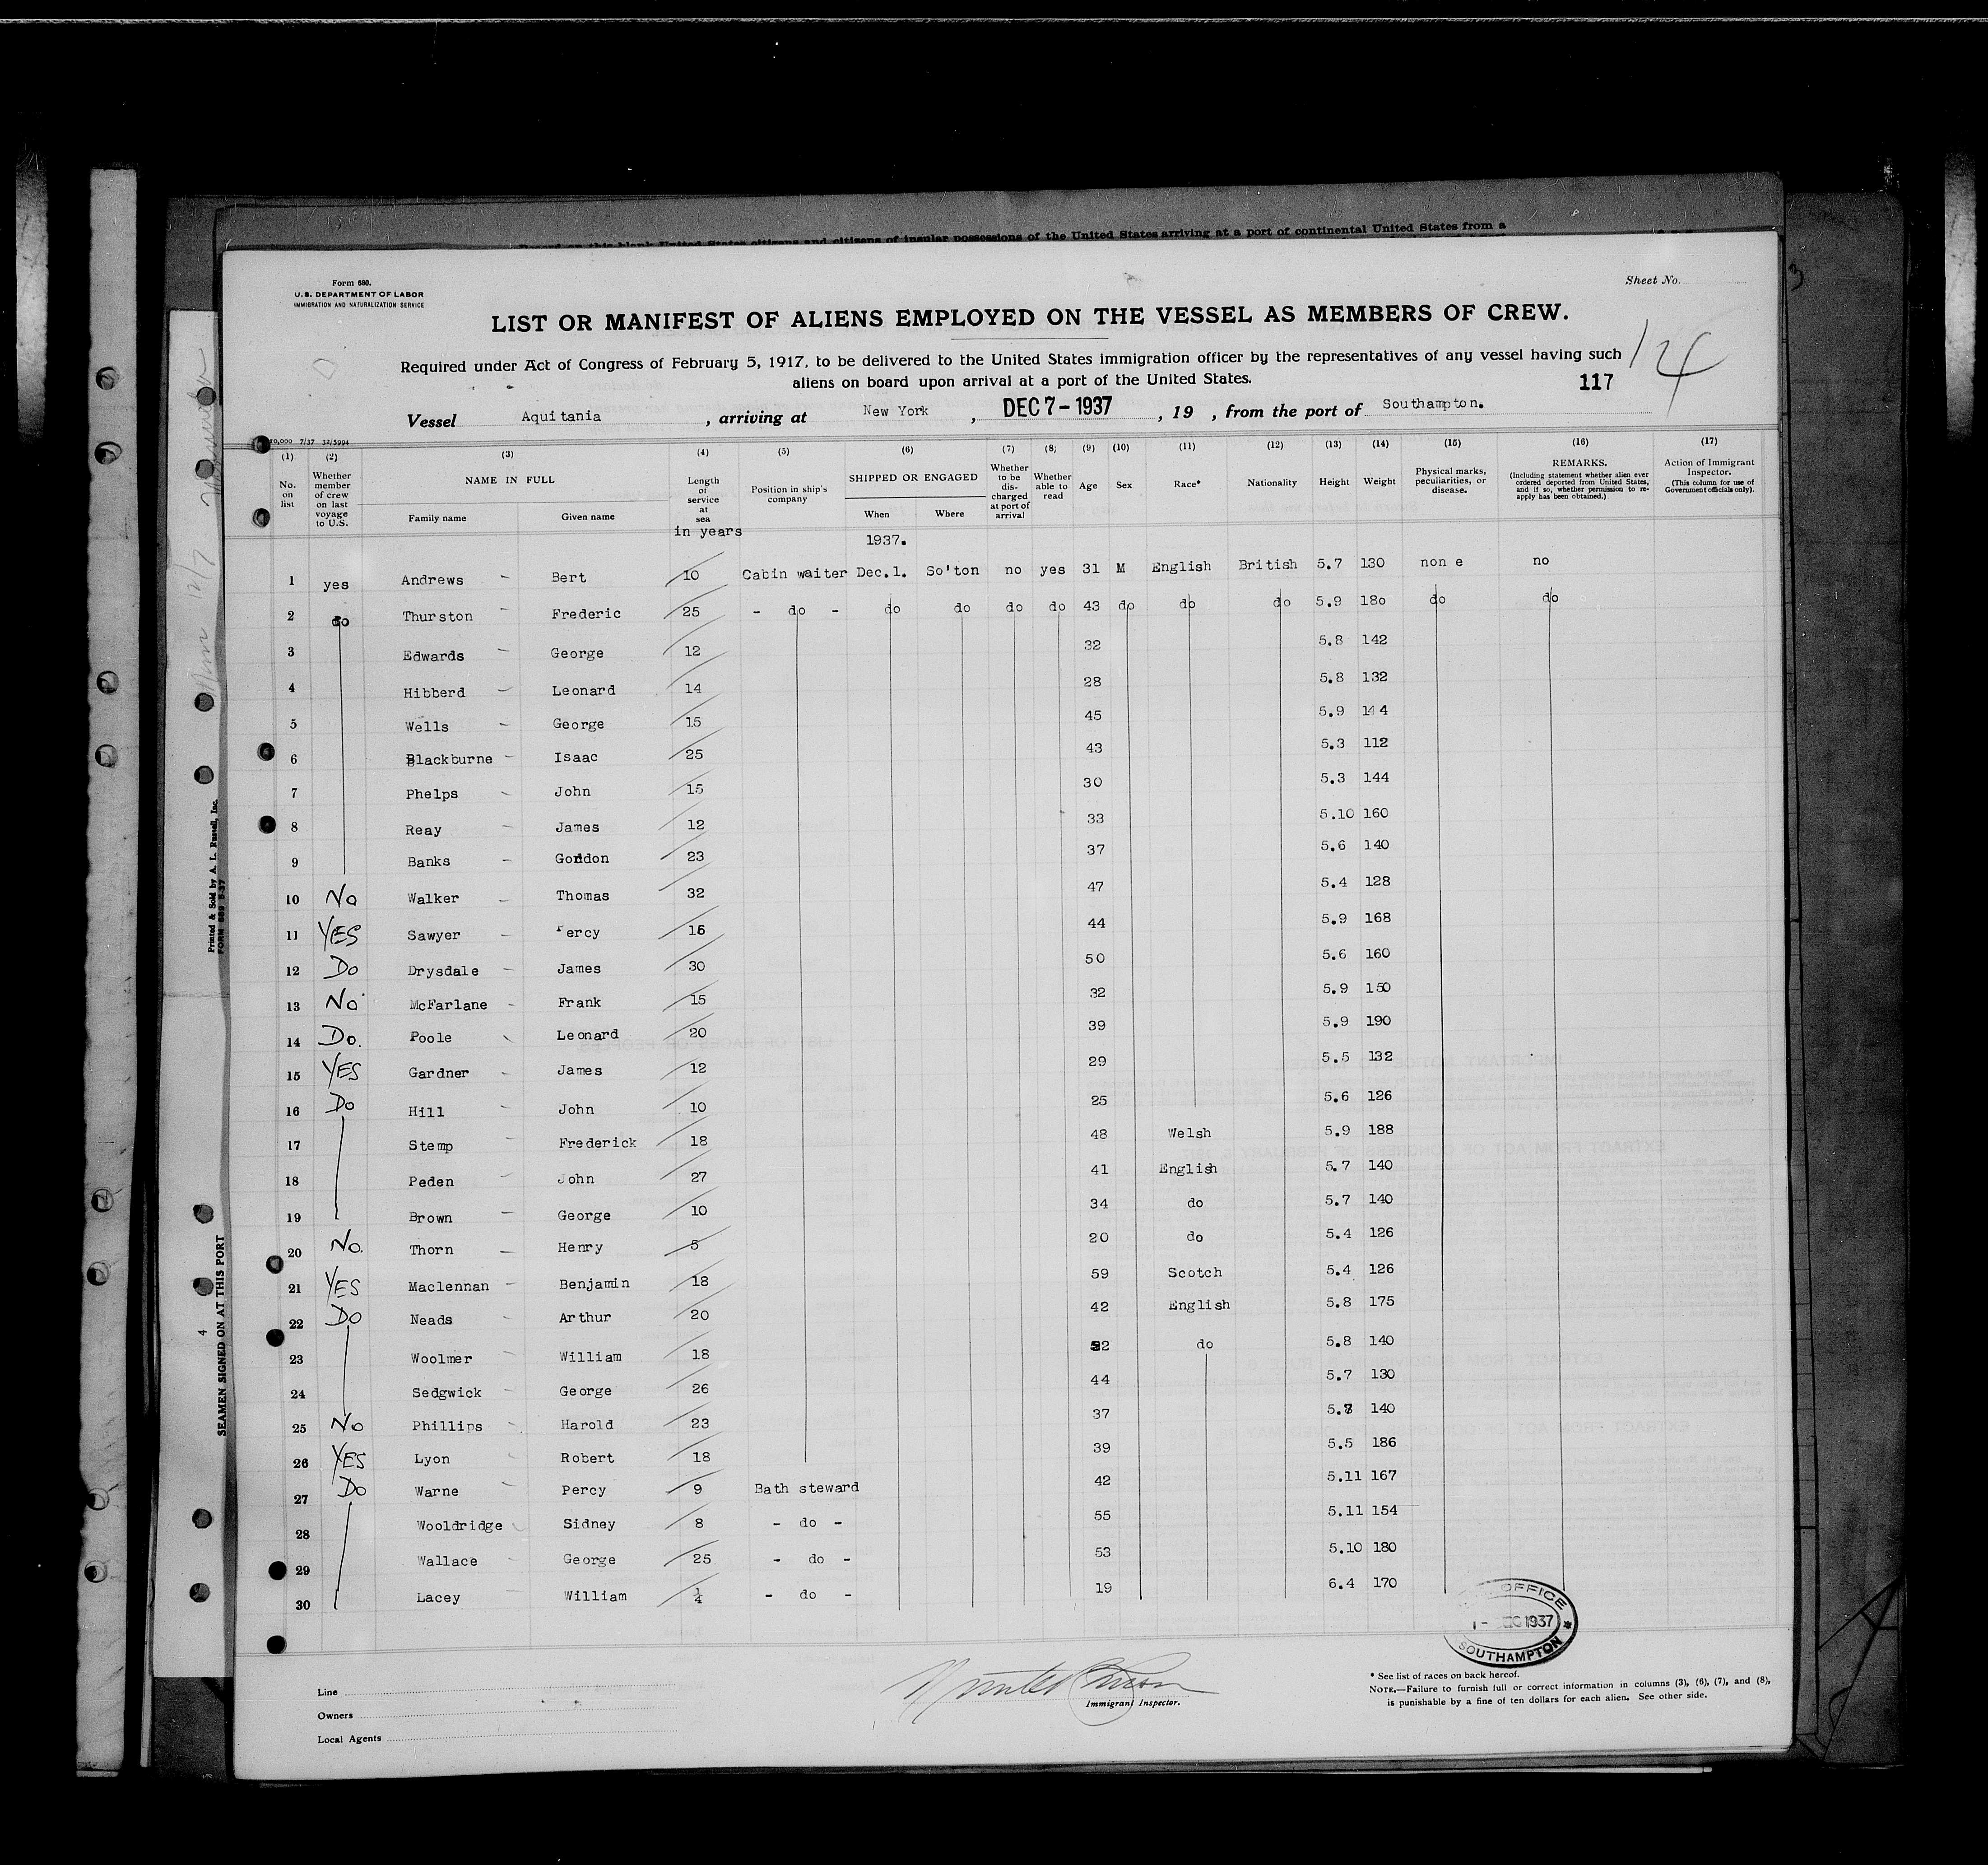 Record on this blank United States citizens and citizens of insular possessions of the United States arriving at a port of continental United States from a
Form 680.
U. S. DEPARTMENT OF LABOR
IMMIGRATION AND NATURALIZATION SERVICE
Sheet No.
LIST OR MANIFEST OF ALIENS EMPLOYED ON THE VESSEL AS MEMBERS OF CREW.
Required under Act of Congress of February 5, 1917, to be delivered to the United States immigration officer by the representatives of any vessel having such
aliens on board upon arrival at a port of the United States.
117
14
Vessel Aquitania , arriving at New York , DEC 7 - 1937 , 19 , from the port of Southampton.
10,000 7/37 32/5994
(1) (2) (3) (4) (5) (6) (7) (8) (9) (10) (11) (12) (13) (14) (15) (16) (17)
No. on list
Whether member of crew on last voyage to U.S.
NAME IN FULL
Family name Given name
Length of service at sea
in years
Position in ship's company
SHIPPED OR ENGAGED
When Where
1937.
Whether to be discharged at port of arrival
Whether able to read
Age
Sex
Race*
Nationality
Height
Weight
Physical marks, peculiarities, or disease.
REMARKS.
(Including statement whether alien ever ordered deported from United States, and if so, whether permission to reapply has been obtained.)
Action of Immigrant Inspector.
(This column for use of Government officials only).
1 yes Andrews - Bert 10 Cabin waiter Dec.1. So'ton no yes 31 M English British 5.7 130 non e no
2 do Thurston - Frederic 25 - do - do do do do 43 do do do 5.9 180 do do
3 Edwards - George 12 32 5.8 142
4 Hibberd - Leonard 14 28 5.8 132
5 Wells - George 15 45 5.9 144
6 Blackburne - Isaac 25 43 5.3 112
7 Phelps - John 15 30 5.3 144
8 Reay - James 12 33 5.10 160
9 Banks - Gordon 23 37 5.6 140
10 No Walker - Thomas 32 47 5.4 128
11 YES Sawyer - Percy 16 44 5.9 168
12 Do Drysdale - James 30 50 5.6 160
13 No McFarlane - Frank 15 32 5.9 150
14 Do. Poole - Leonard 20 39 5.9 190
15 YES Gardner - James 12 29 5.5 132
16 Do Hill - John 10 25 5.6 126
17 Stemp - Frederick 18 48 Welsh 5.9 188
18 Peden - John 27 41 English 5.7 140
19 Brown - George 10 34 do 5.7 140
20 No. Thorn - Henry 5 20 do 5.4 126
21 YES Maclennan - Benjamin 18 59 Scotch 5.4 126
22 Do Neads - Arthur 20 42 English 5.8 175
23 Woolmer - William 18 do 5.8 140
24 Sedgwick - George 26 44 5.7 130
25 No Phillips - Harold 23 37 140
26 YES Lyon - Robert 18 39 5.5 186
27 Do Warne - Percy 9 Bath steward 42 5.11 167
28 Wooldridge Sidney 8 - do - 55 5.11 154
29 Wallace - George 25 - do - 53 5.10 180
30 Lacey - William ¼ - do - 19 6.4 170
OFFICE
1 - DEC 1937
SOUTHAMPTON
Line
Owners
Local Agents
Immigrant Inspector.
* See list of races on back hereof.
NOTE.—Failure to furnish full or correct information in columns (3), (6), (7), and (8),
is punishable by a fine of ten dollars for each alien. See other side.
Printed & Sold by A. L. Russell, Inc.
FORM 689 5-37
SEAMEN SIGNED ON AT THIS PORT
4
3